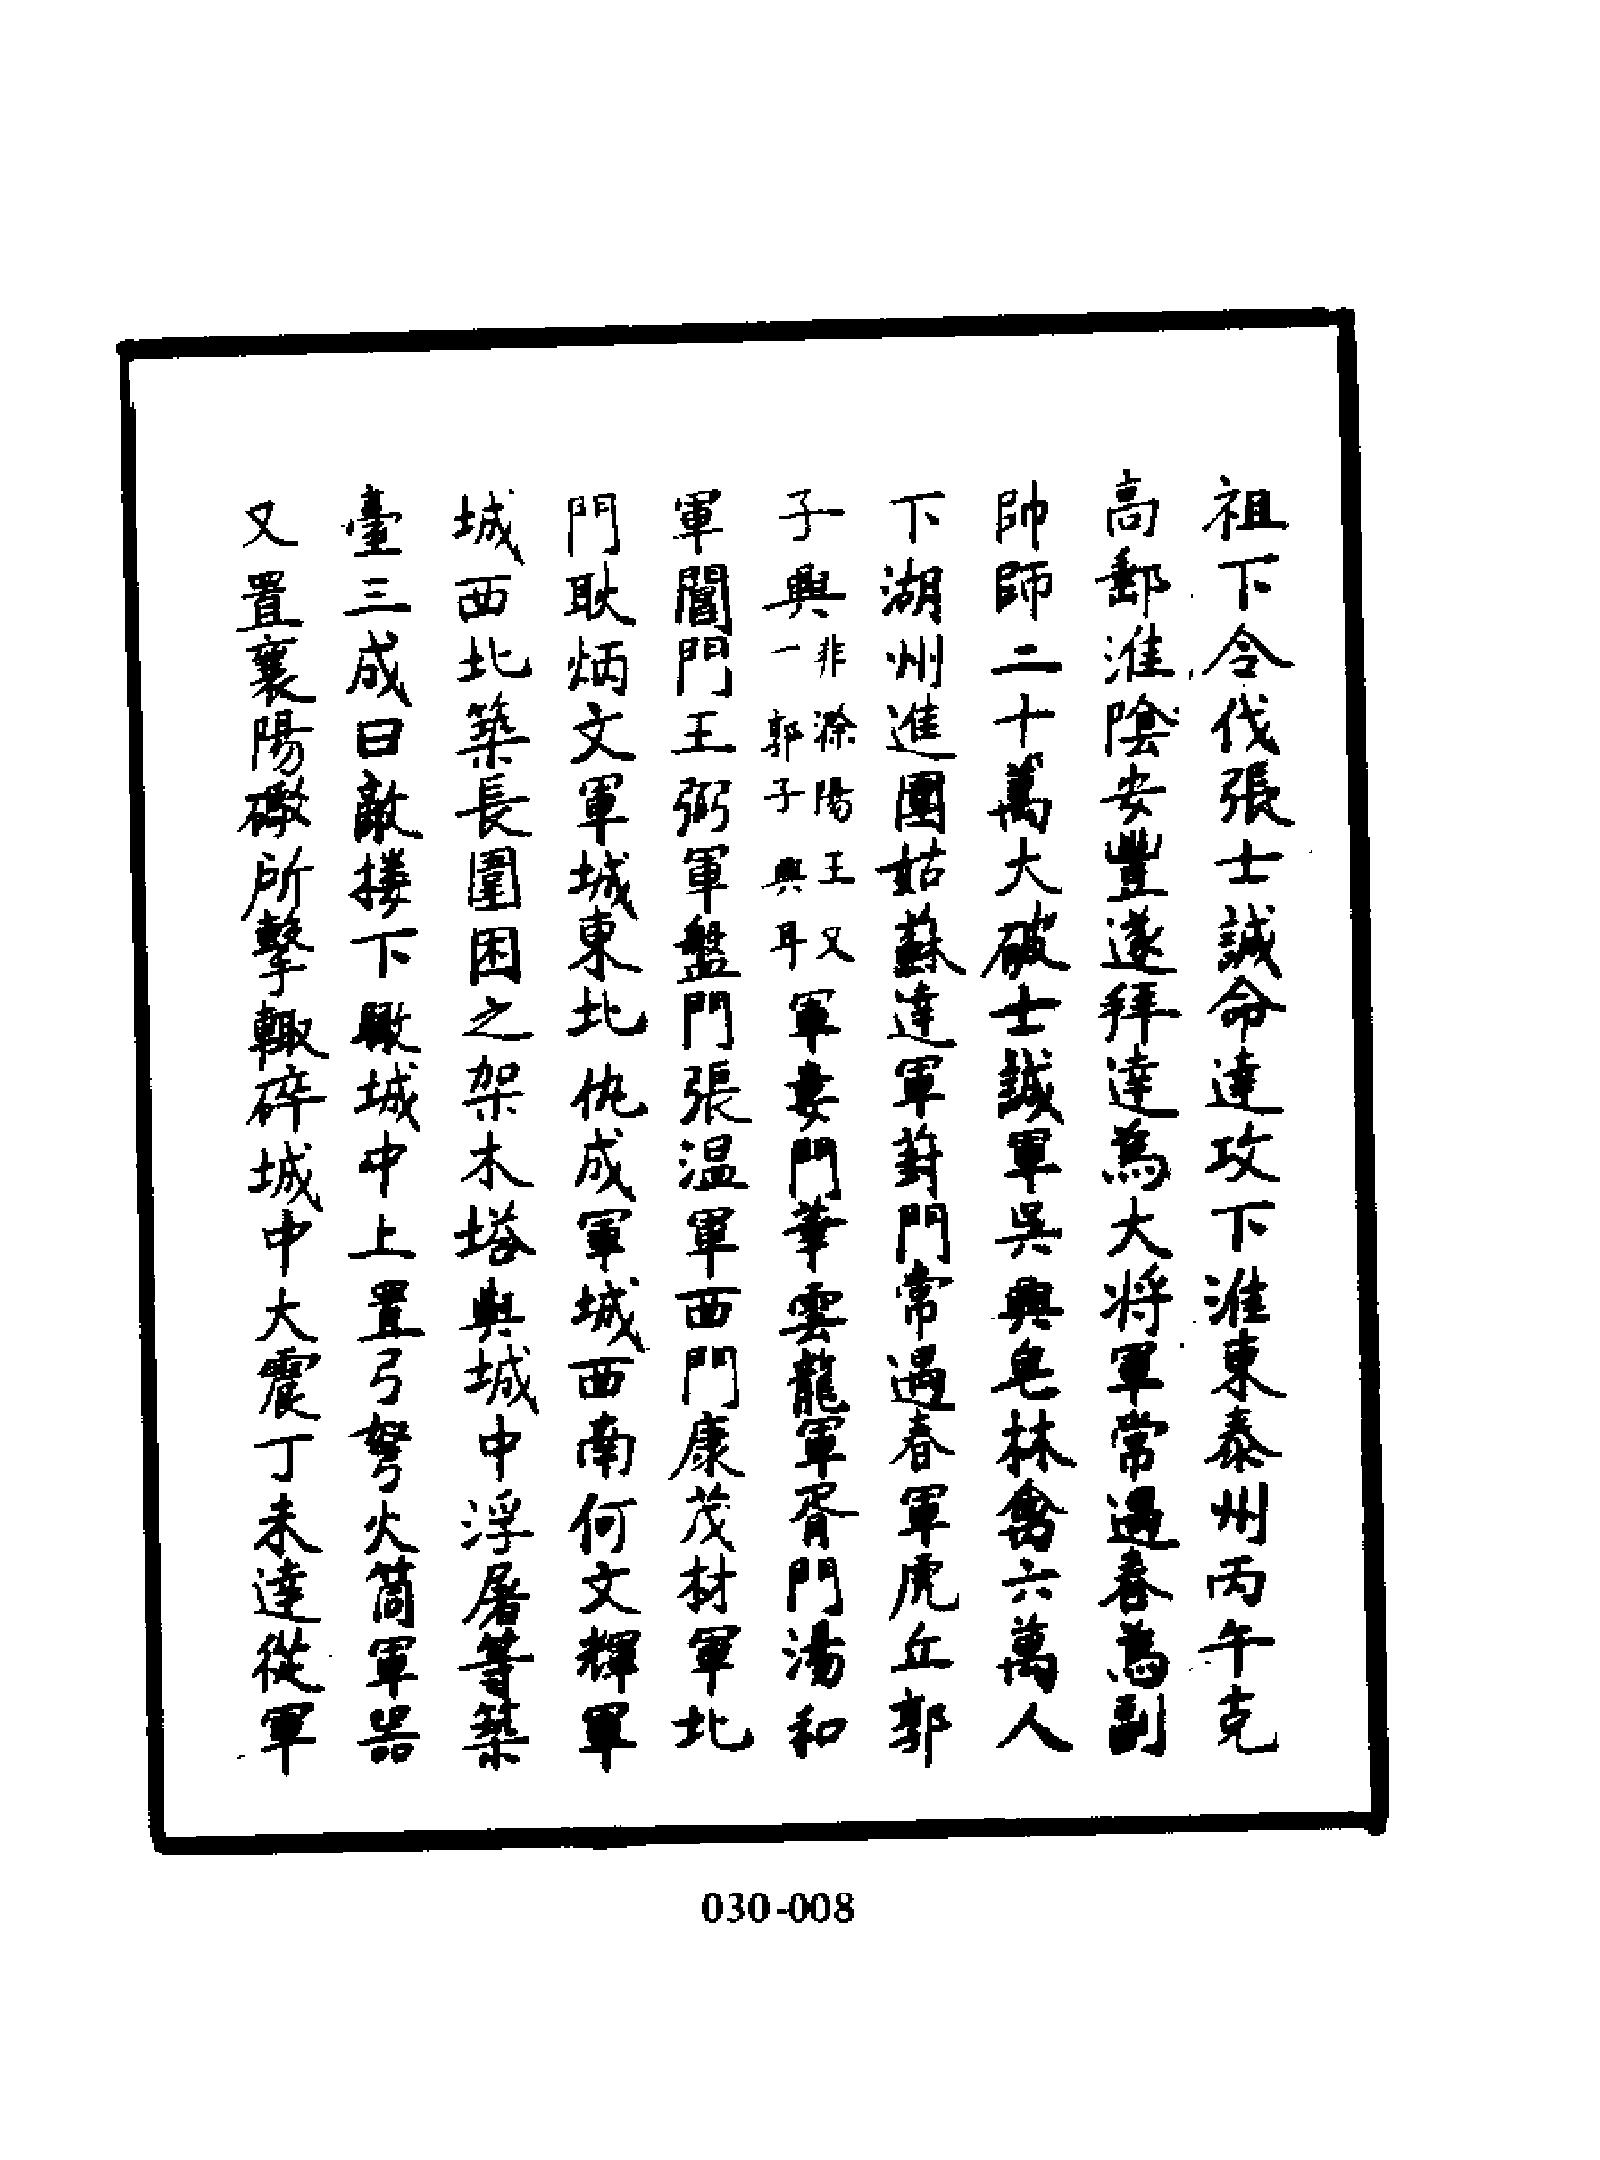 祖下令伐張士誠命達攻下淮東泰州丙午克
高郵淮陰安豐遂拜達為大將軍常遇春為副
帥師二十萬大破士誠軍吳興皂林禽六萬人
下湖州進圍姑蘇達軍葑門常遇春軍虎丘郭
子興
非滁陽王又
一郭子興耳
軍婁門華雲龍軍胥門湯和
軍閶門王弼軍盤門張温軍西門康茂材軍北
門耿炳文軍城東北仇成軍城西南何文輝軍
城西北築長圍困之架木塔與城中浮屠等築
臺三成曰敵樓下瞰城中上置弓弩火筒軍器
又置襄陽礮所擊輙碎城中大震丁未達從軍
030-008